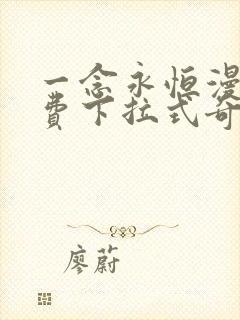 一念永恒漫
费下拉式奇
廖蔚